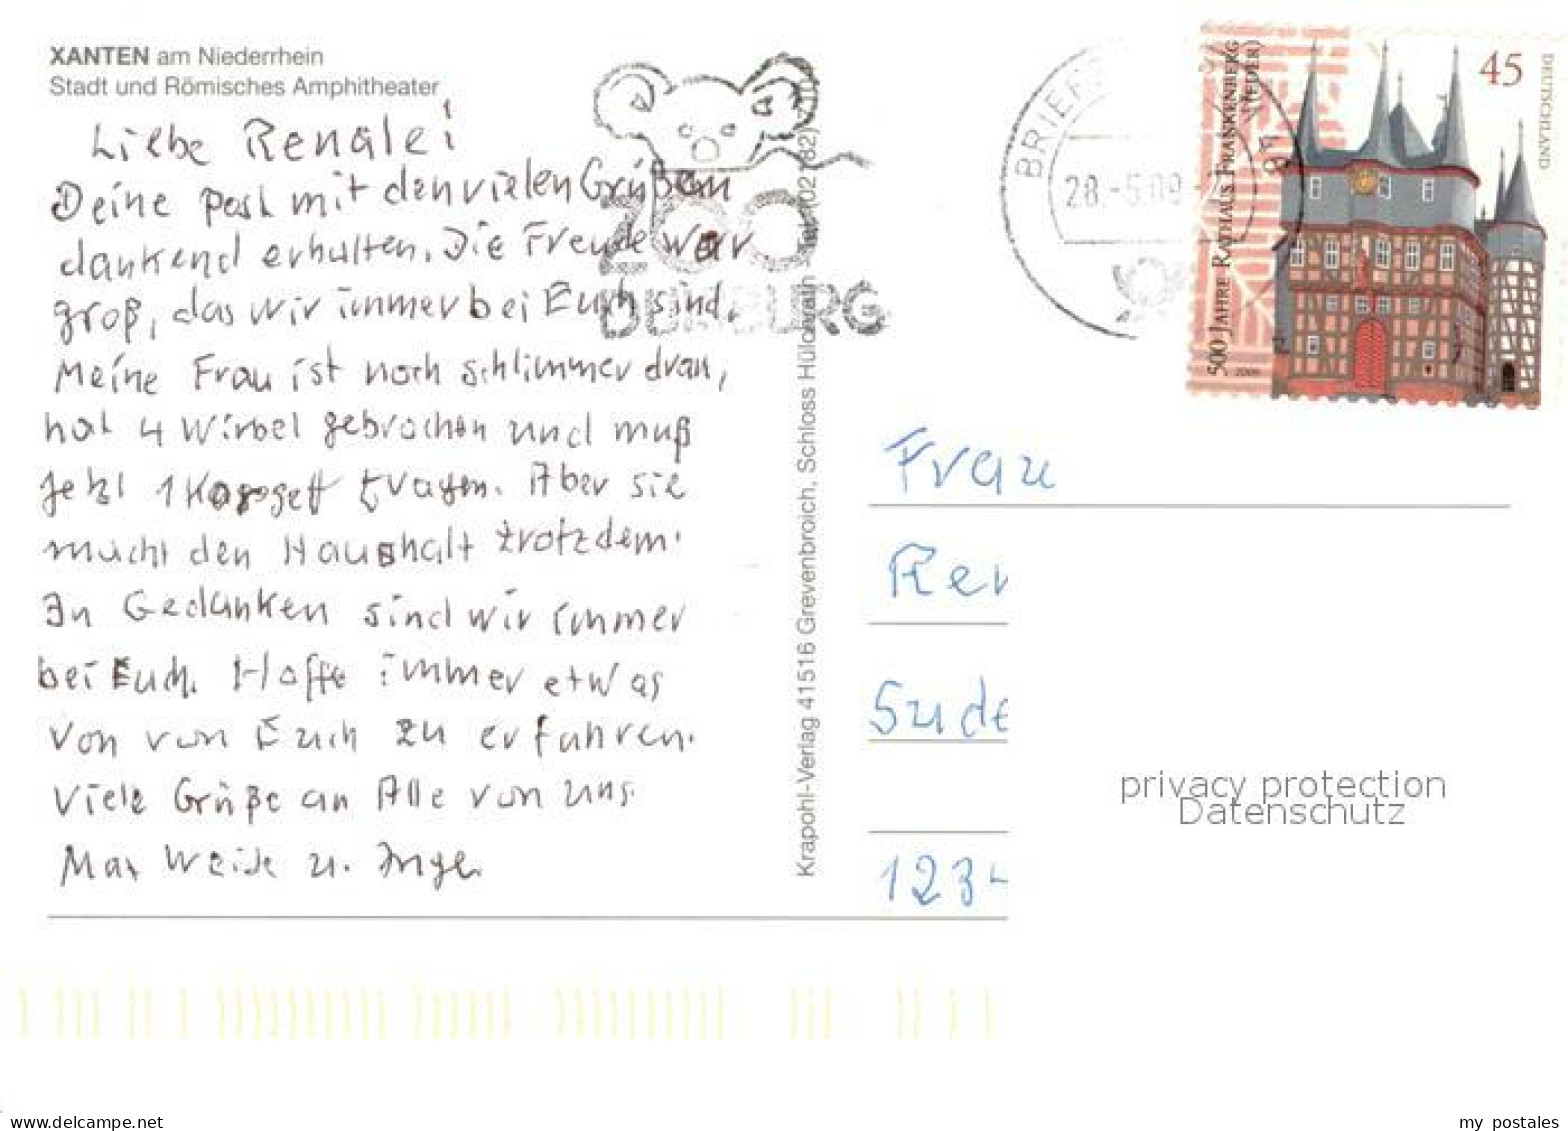 XANTEN am Niederrhein
Stadt und Römisches Amphitheater
Liebe Renate!
Deine Post mit den vielen Grüßen
dankend erhalten. Die Freude war
groß, das wir immer bei Euch sind.
Meine Frau ist noch schlimmer dran,
hat 4 Wirbel gebrochen und muß
jetzt 1 Korsett tragen. Aber sie
macht den Haushalt trotzdem.
In Gedanken sind wir immer
bei Euch. Hoffe immer etwas
von von Euch zu erfahren.
Viele Grüße an Alle von uns.
Max u. Inge.
ZOO
DUISBURG
Krapohl-Verlag 41516 Grevenbroich, Schloss Hülchrath Tel. (02182)
BRIEFZ
28.-5.09
500 JAHRE RATHAUS FRANKENBERG
(EDER)
45
DEUTSCHLAND
2009
Frau
Ren
Sude
123
privacy protection
Datenschutz
www.delcampe.net
my_postales